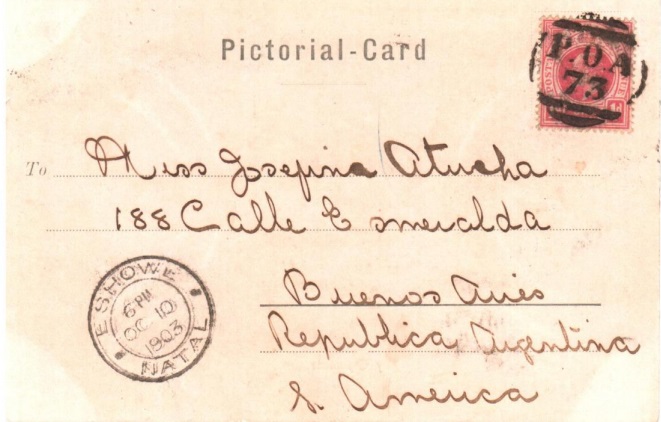 Pictorial-Card
P.O.A
73
To Miss Josefina Atucha
188 Calle Esmeralda
Buenos Aires
Republica Argentina
S. America
ESHOWE
6 PM
OC 10
1903
NATAL